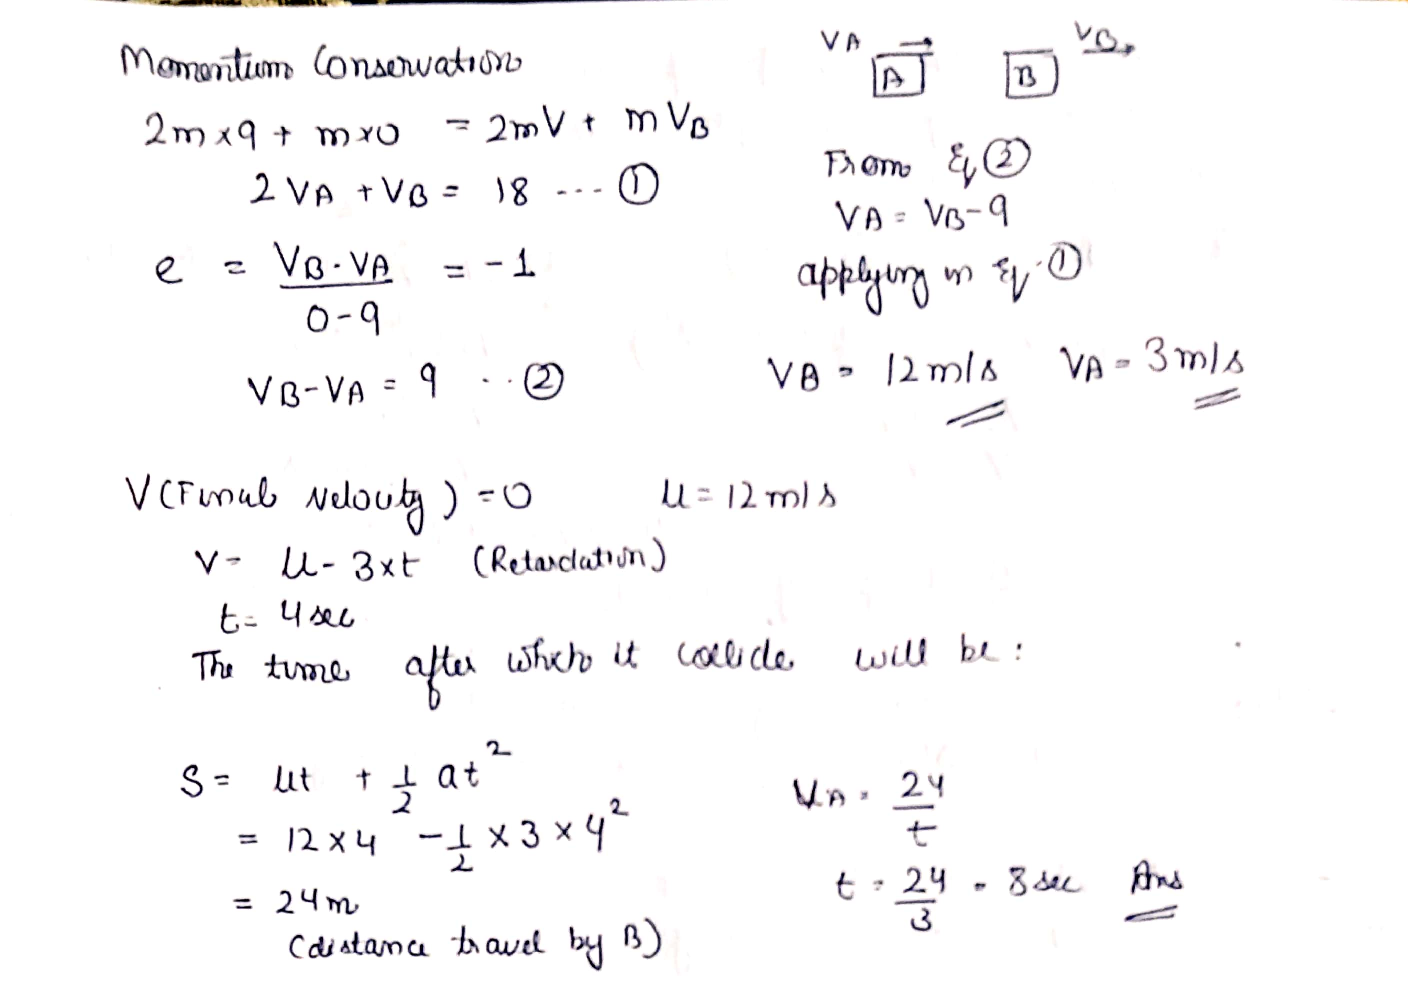 Momentum Conservation
2m x 9 + m x 0 = 2mV + mVB
2VA + VB = 18 ---- ①
e = VB - VA / 0 - 9 = -1
VB - VA = 9 .. ②
VA A B VB
From Eq ②
VA = VB - 9
applying in Eq. ①
VB = 12 m/s VA = 3 m/s
V (Final velocity) = 0 U = 12 m/s
V = U - 3xt (Retardation)
t = 4 sec
The time after which it collide will be :
S = ut + 1/2 at²
= 12 x 4 - 1/2 x 3 x 4²
= 24m
(distance travel by B)
VA = 24/t
t = 24/3 = 8 sec Ans